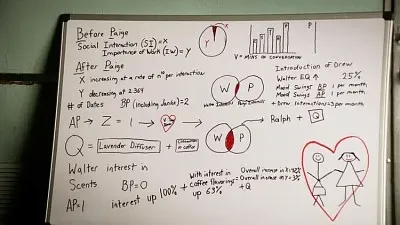 Before Paige
Social Interaction (SI) = X
Importance of Work (IW) = Y
X
Y
P
V = MINS OF CONVERSATION
After Paige
X increasing at a rate of n¹⁰ per interaction
Y decreasing at 2.364
# of Dates BP (including Janks) = 2
W P
Introduction of Drew
Walter EQ ↑ 25%
Mood Swings BP 1 per month
Mood Swings AP 1 per month
+ Drew Interactions = 3 per month
AP → Z = 1 →
W P
Ralph + Q
Q = Lavender Diffuser +
in coffee
Walter interest in
Scents BP = 0
AP = 1 interest up 100% +
With interest in
coffee flavorings =
up 63%
Overall increase in X = 42%
Overall increase in Y = 3%
+ Q